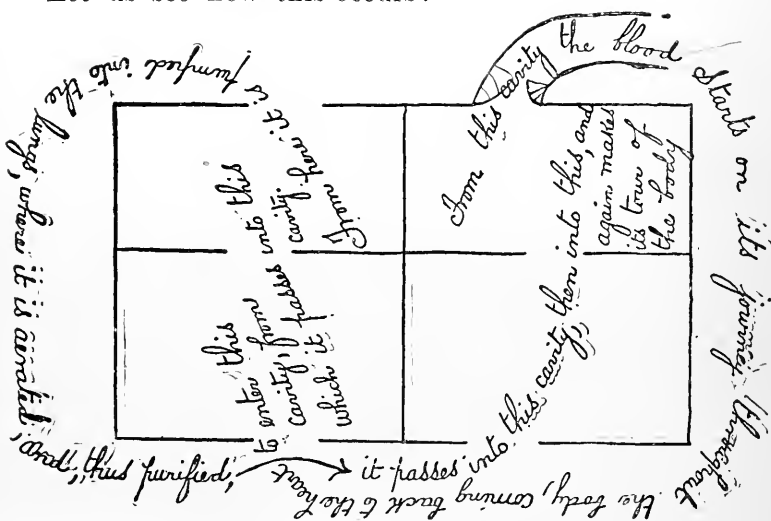 Let us see how this occurs:
From this cavity the blood
Starts on its journey throughout
the body, coming back to the heart
to enter this
cavity, from
which it passes into this
cavity.
From here it is pumped into the
lungs, where it is aerated,
and, thus purified,
it passes into this cavity, then into this, and
again makes
its tour of
the body